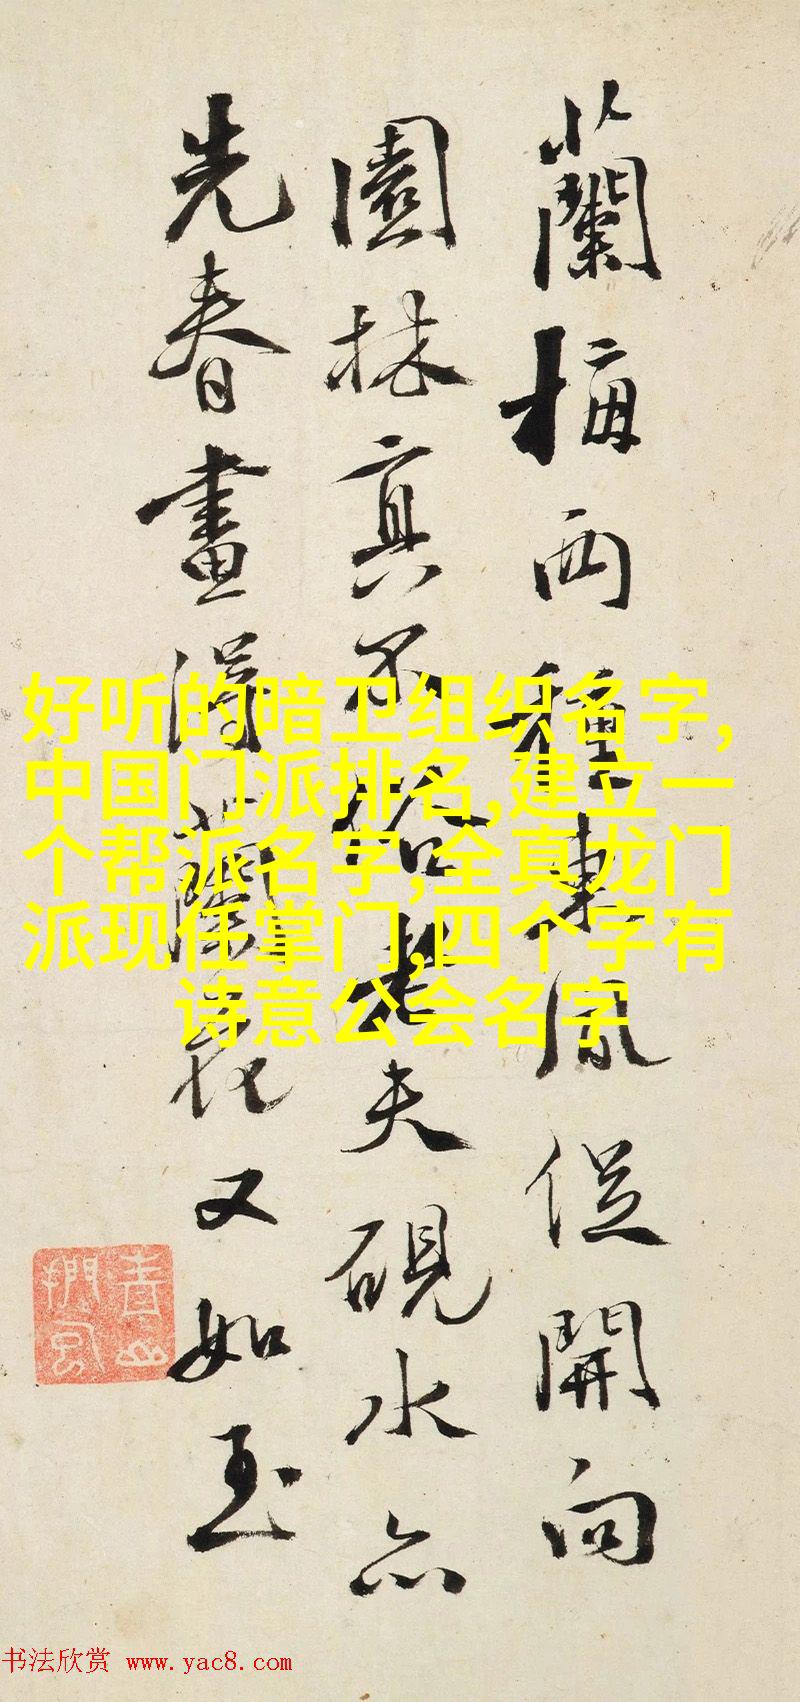 蘭梅两種東風從開向
園林真不俗老夫硯水亦
先春畫得蘭花又如玉
好听的暗卫组织名字,
中国门派排名,建立一
个帮派名字,全真龙门
派现任掌门,四个字有
诗意公会名字
书法欣赏 www.yac8.com